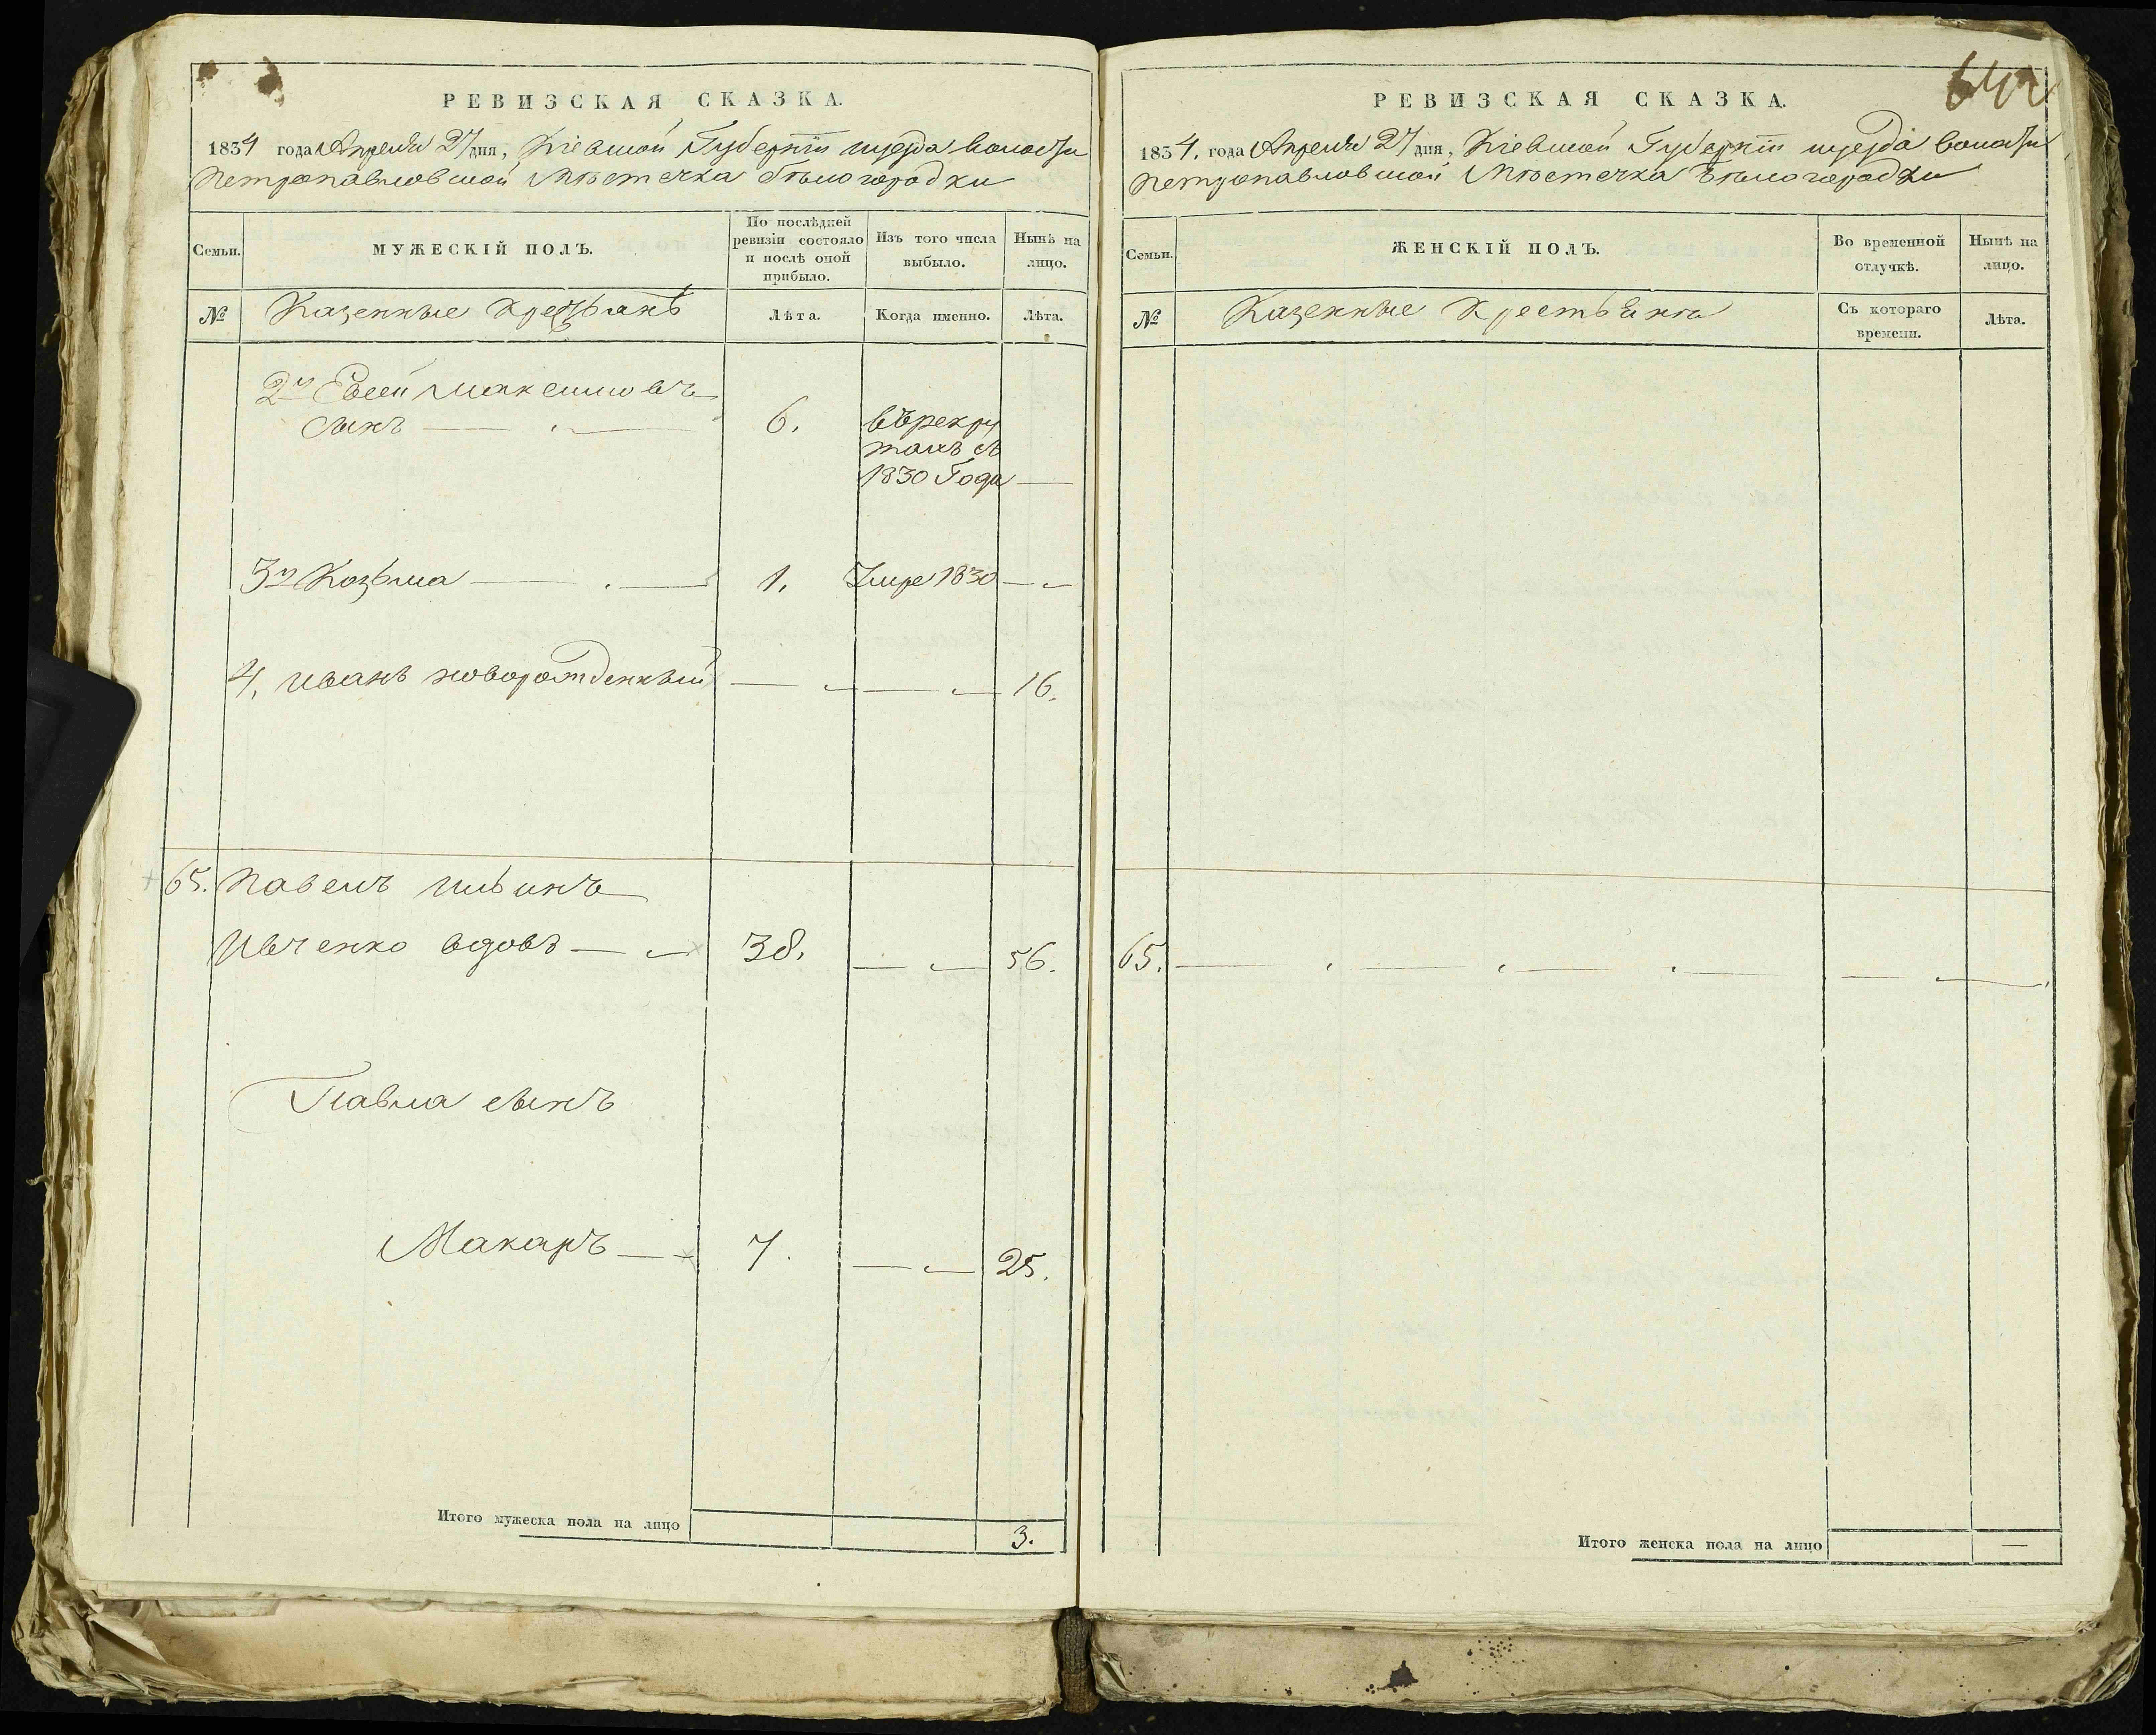 РЕВИЗСКАЯ СКАЗКА.
1834 года Апреля 27 дня, Кіевской Губерніи уезда волости
Петропавловской Мѣстечка Бѣлогородки
Семьи.
МУЖЕСКІЙ ПОЛЪ.
По послѣдней ревизіи состояло и послѣ оной прибыло.
Изъ того числа выбыло.
Нынѣ на лицо.
№
Казенные Крестьянѣ
Лѣта.
Когда именно.
Лѣта.
2й Евсей Максимовъ
сынъ — 6. въ рекру
тахъ съ
1830 Года —
3й Козьма — 1. Умре 1830 —
4. Иванъ новорожденный — — 16.
65. Павелъ Ильинъ
Ивченко вдовъ — 38. — 56.
Павла сынъ
Макаръ — 7. — 25.
Итого мужеска пола на лицо 3.
642
РЕВИЗСКАЯ СКАЗКА.
1834. года Апреля 27 дня, Кіевской Губерніи уезда волости
Петропавловской Мѣстечка Бѣлогородки
Семьи.
ЖЕНСКІЙ ПОЛЪ.
Во временной отлучкѣ.
Нынѣ на лицо.
№
Казенные Крестьянки
Съ котораго времени.
Лѣта.
65. — — — — — —
Итого женска пола на лицо —